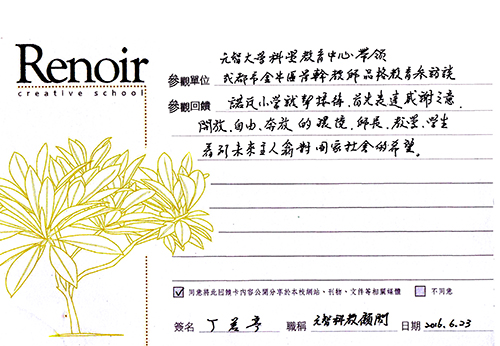 Renoir
creative school
元智大學科學教育中心 帶領
參觀單位 成都市金牛區骨幹教師品格教育參訪談
參觀回饋 諾瓦小學就 ，首先表達感謝之意，
開放、自由、奔放的環境，師長、教學、學生
看到未來主人翁對國家社會的希望。
同意將此回饋卡內容公開分享於本校網站、刊物、文件等相關媒體 不同意
簽名 丁 亭 職稱 元智科教顧問 日期 2016.6.23